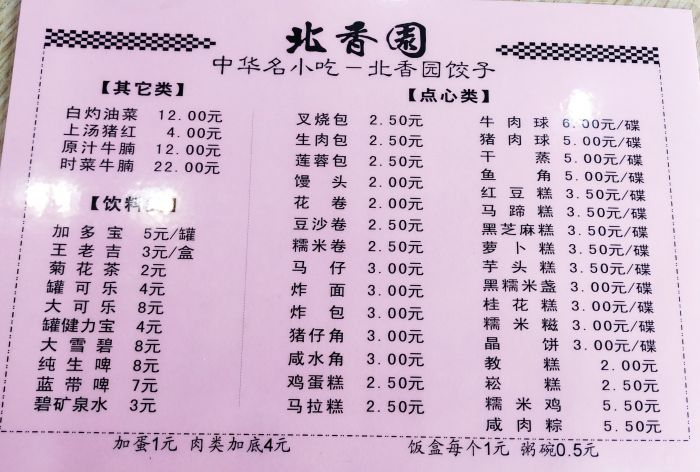 北香園
中华名小吃－北香园饺子
【其它类】
白灼油菜 12.00元
上汤猪红 4.00元
原汁牛腩 12.00元
时菜牛腩 22.00元
【饮料
加多宝 5元/罐
王老吉 3元/盒
菊花茶 2元
罐可乐 4元
大可乐 8元
罐健力宝 4元
大雪碧 8元
纯生啤 8元
蓝带啤 7元
碧矿泉水 3元
【点心类】
叉烧包 2.50元
生肉包 2.50元
莲蓉包 2.50元
馒头 2.00元
花卷 2.00元
豆沙卷 2.50元
糯米卷 2.50元
马仔 3.00元
炸面 3.00元
炸包 3.00元
猪仔角 3.00元
咸水角 3.00元
鸡蛋糕 2.50元
马拉糕 2.50元
牛肉球 6.00元/碟
猪肉球 5.00元/碟
干蒸 5.00元/碟
鱼角 5.00元/碟
红豆糕 3.50元/碟
马蹄糕 3.50元/碟
黑芝麻糕 3.50元/碟
萝卜糕 3.50元/碟
芋头糕 3.50元/碟
黑糯米盏 3.00元/碟
桂花糕 3.00元/碟
糯米糍 3.00元/碟
晶饼 3.00元/碟
教糕 2.00元
崧糕 2.50元
糯米鸡 5.50元
咸肉粽 5.50元
加蛋1元 肉类加底4元
饭盒每个1元 粥碗0.5元